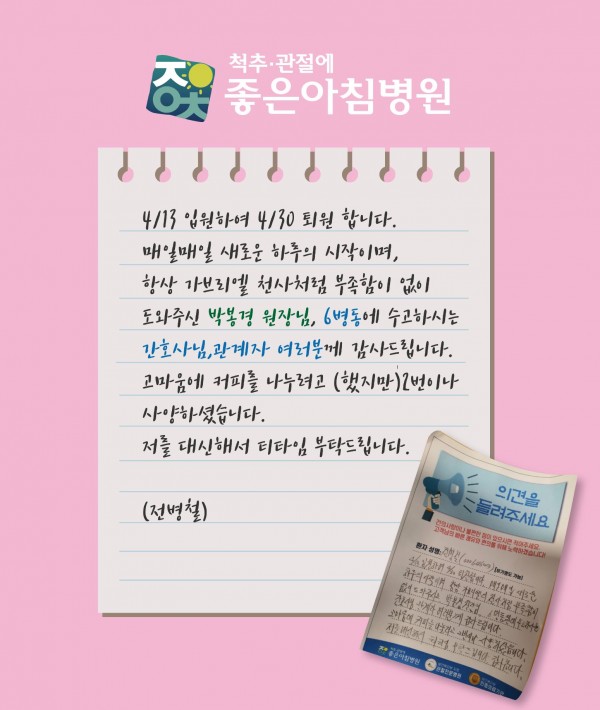 척추·관절에
좋은아침병원
4/13 입원하여 4/30 퇴원 합니다.
매일매일 새로운 하루의 시작이며,
항상 가브리엘 천사처럼 부족함이 없이
도와주신 박봉경 원장님, 6병동에 수고하시는
간호사님,관계자 여러분께 감사드립니다.
고마움에 커피를 나누려고 (했지만)2번이나
사양하셨습니다.
저를 대신해서 티타임 부탁드립니다.
(전병철)
의견을
들려주세요
건의사항이나 불편한 점이 있으시면 적어주세요.
환자 성명:
좋은아침병원